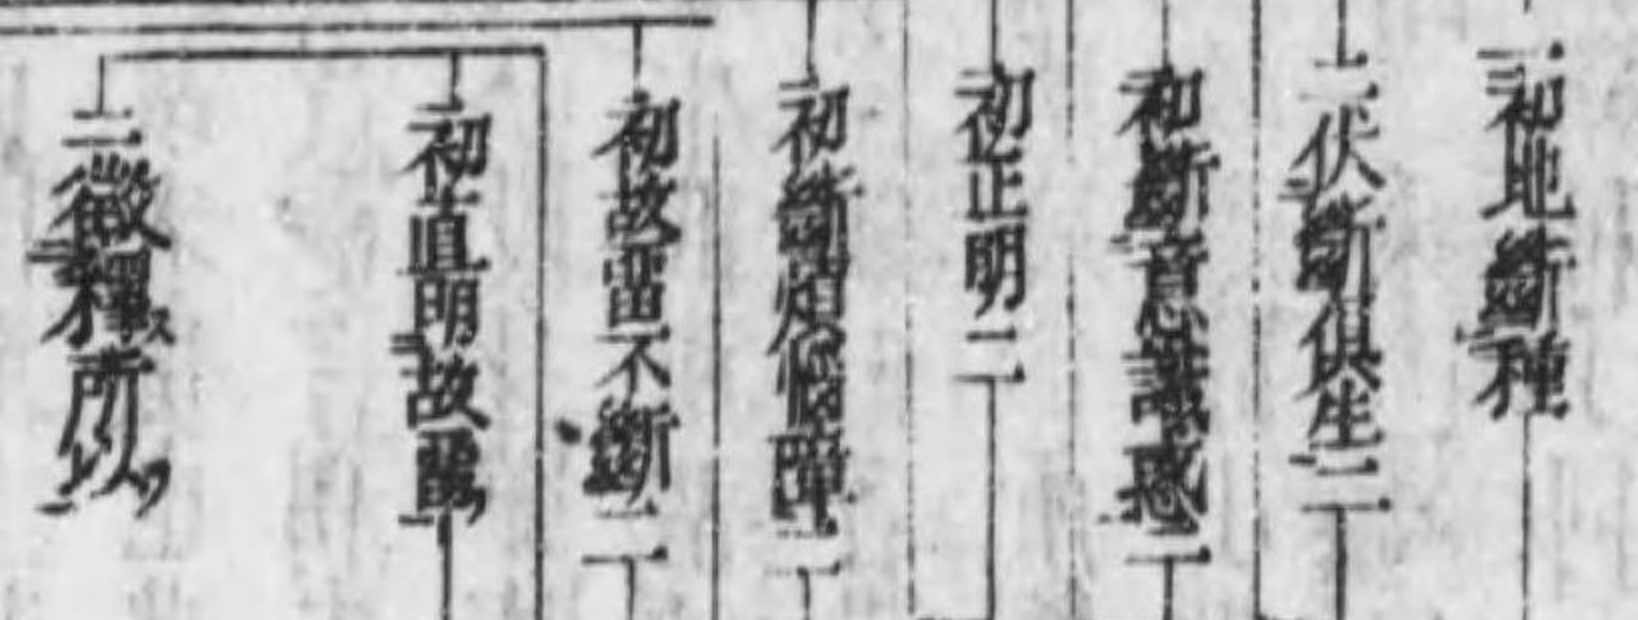 初地斷種
二伏斷俱生二
初斷意識惑二
初正明二
初斷煩惱障二
初故留不斷二
初直明故留
二徵釋所以